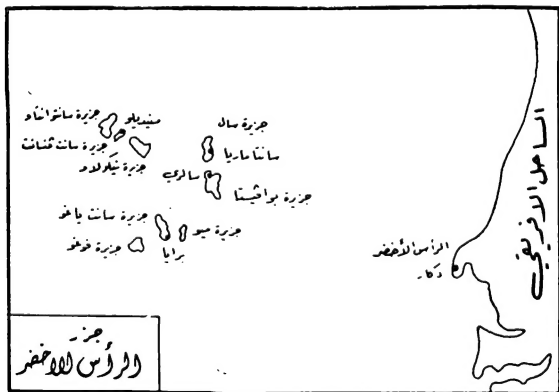 الساحل الافريقي
جزيرة سانتوانتاو
منيديلو
جزيرة سانت فنسانت
جزيرة نيكولاو
جزيرة سال
سانتاماريا
سالري
جزيرة بوافيستا
جزيرة سانت ياغو
جزيرة ميو
برايا
جزيرة فوغو
الرأس الأخضر
دكار
جزر
الرأس الاخضر